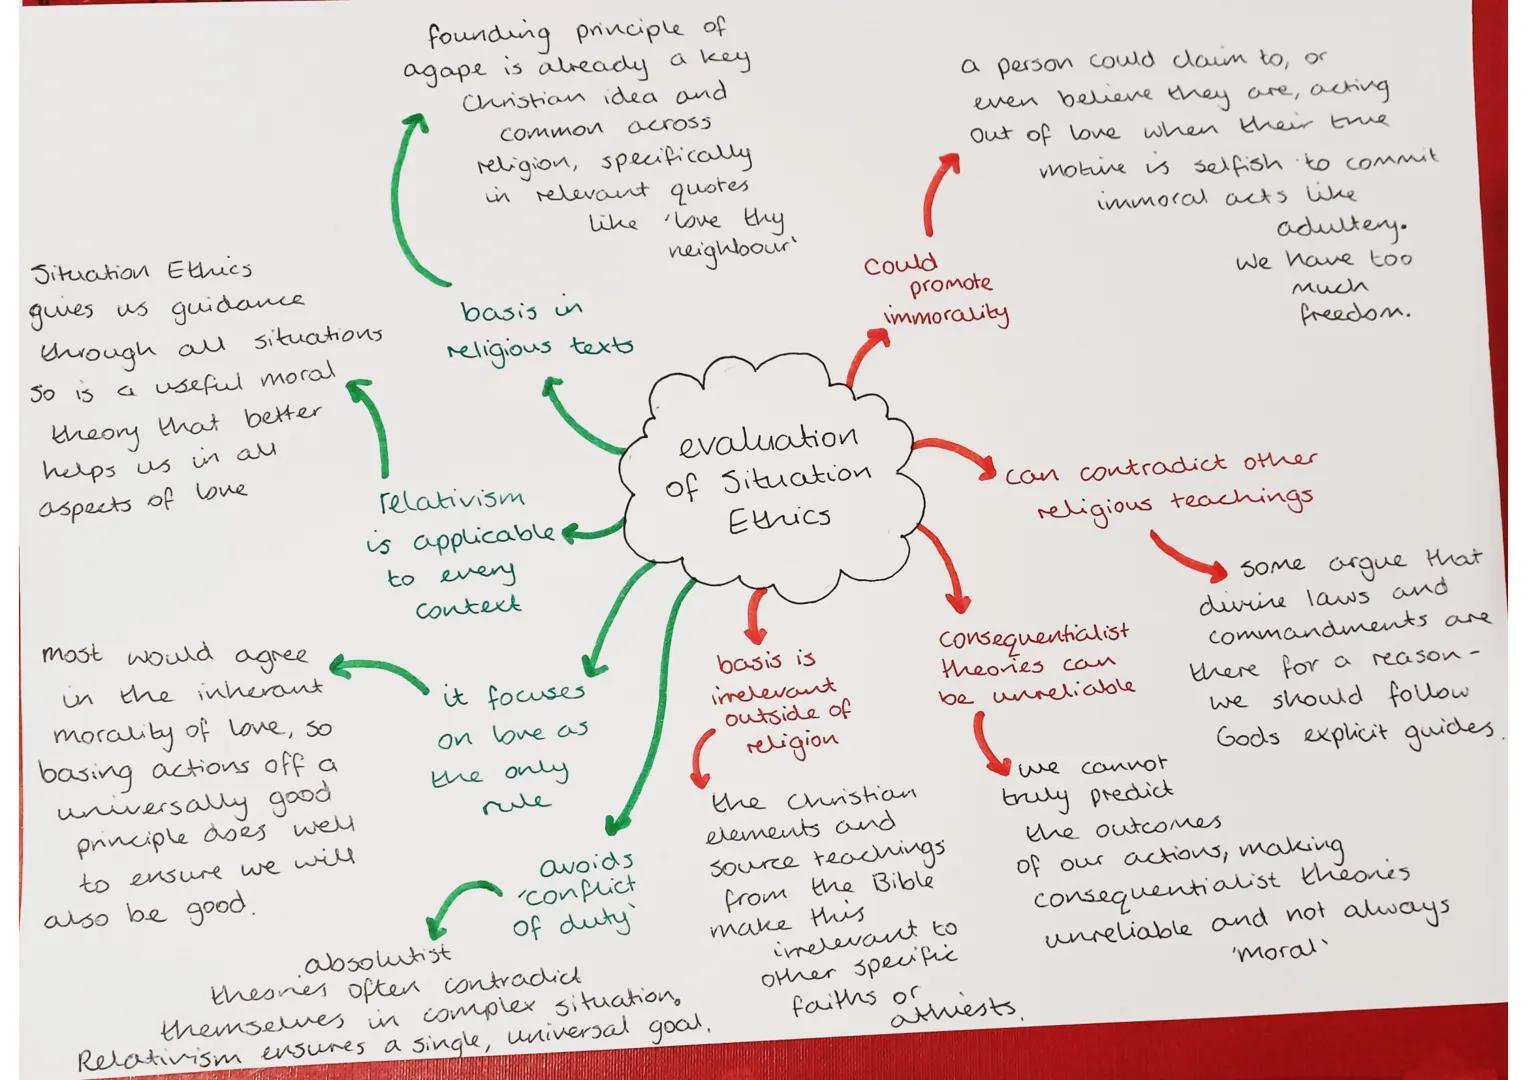 evaluation
of Situation
Ethics
basis in
religious texts
founding principle of
agape is already a key
Christian idea and
common across
religion, specifically
in relevant quotes
like 'love thy
neighbour'
relativism
is applicable
to every
context
Situation Ethics
gives us guidance
through all situations
so is a useful moral
theory that better
helps us in all
aspects of love
it focuses
on love as
the only
rule
most would agree
in the inherant
morality of love, so
basing actions off a
universally good
principle does well
to ensure we will
also be good.
avoids
'conflict
of duty'
absolutist
theories often contradict
themselves in complex situation,
Relativism ensures a single, universal goal.
Could
promote
immorality
a person could claim to, or
even believe they are, acting
out of love when their true
motive is selfish to commit
immoral acts like
adultery.
we have too
much
freedom.
can contradict other
religious teachings
some argue that
divine laws and
commandments are
there for a reason-
we should follow
Gods explicit guides.
consequentialist
theories can
be unreliable
we cannot
truly predict
the outcomes
of our actions, making
consequentialist theories
unreliable and not always
'moral'
basis is
irrelevant
outside of
religion
the Christian
elements and
source teachings
from the Bible
make this
irrelevant to
other specific
faiths or
athiests.